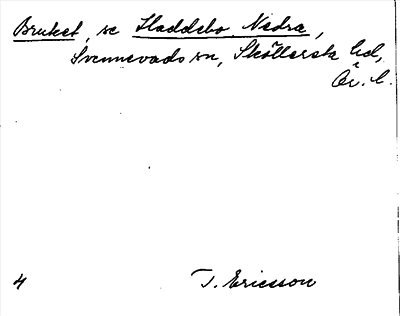 Bruket, se Haddebo Nedre,
Svennevads sn, Sköllersta hd,
Ör. l.
4 T. Ericsson